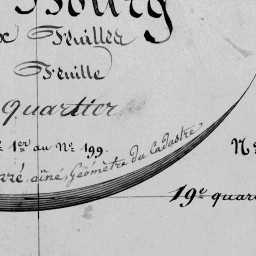 Bourg
Feuilles
Feuille
quartier
1er au No 199.
No
aîné, Géomètre du Cadastre
19e quar